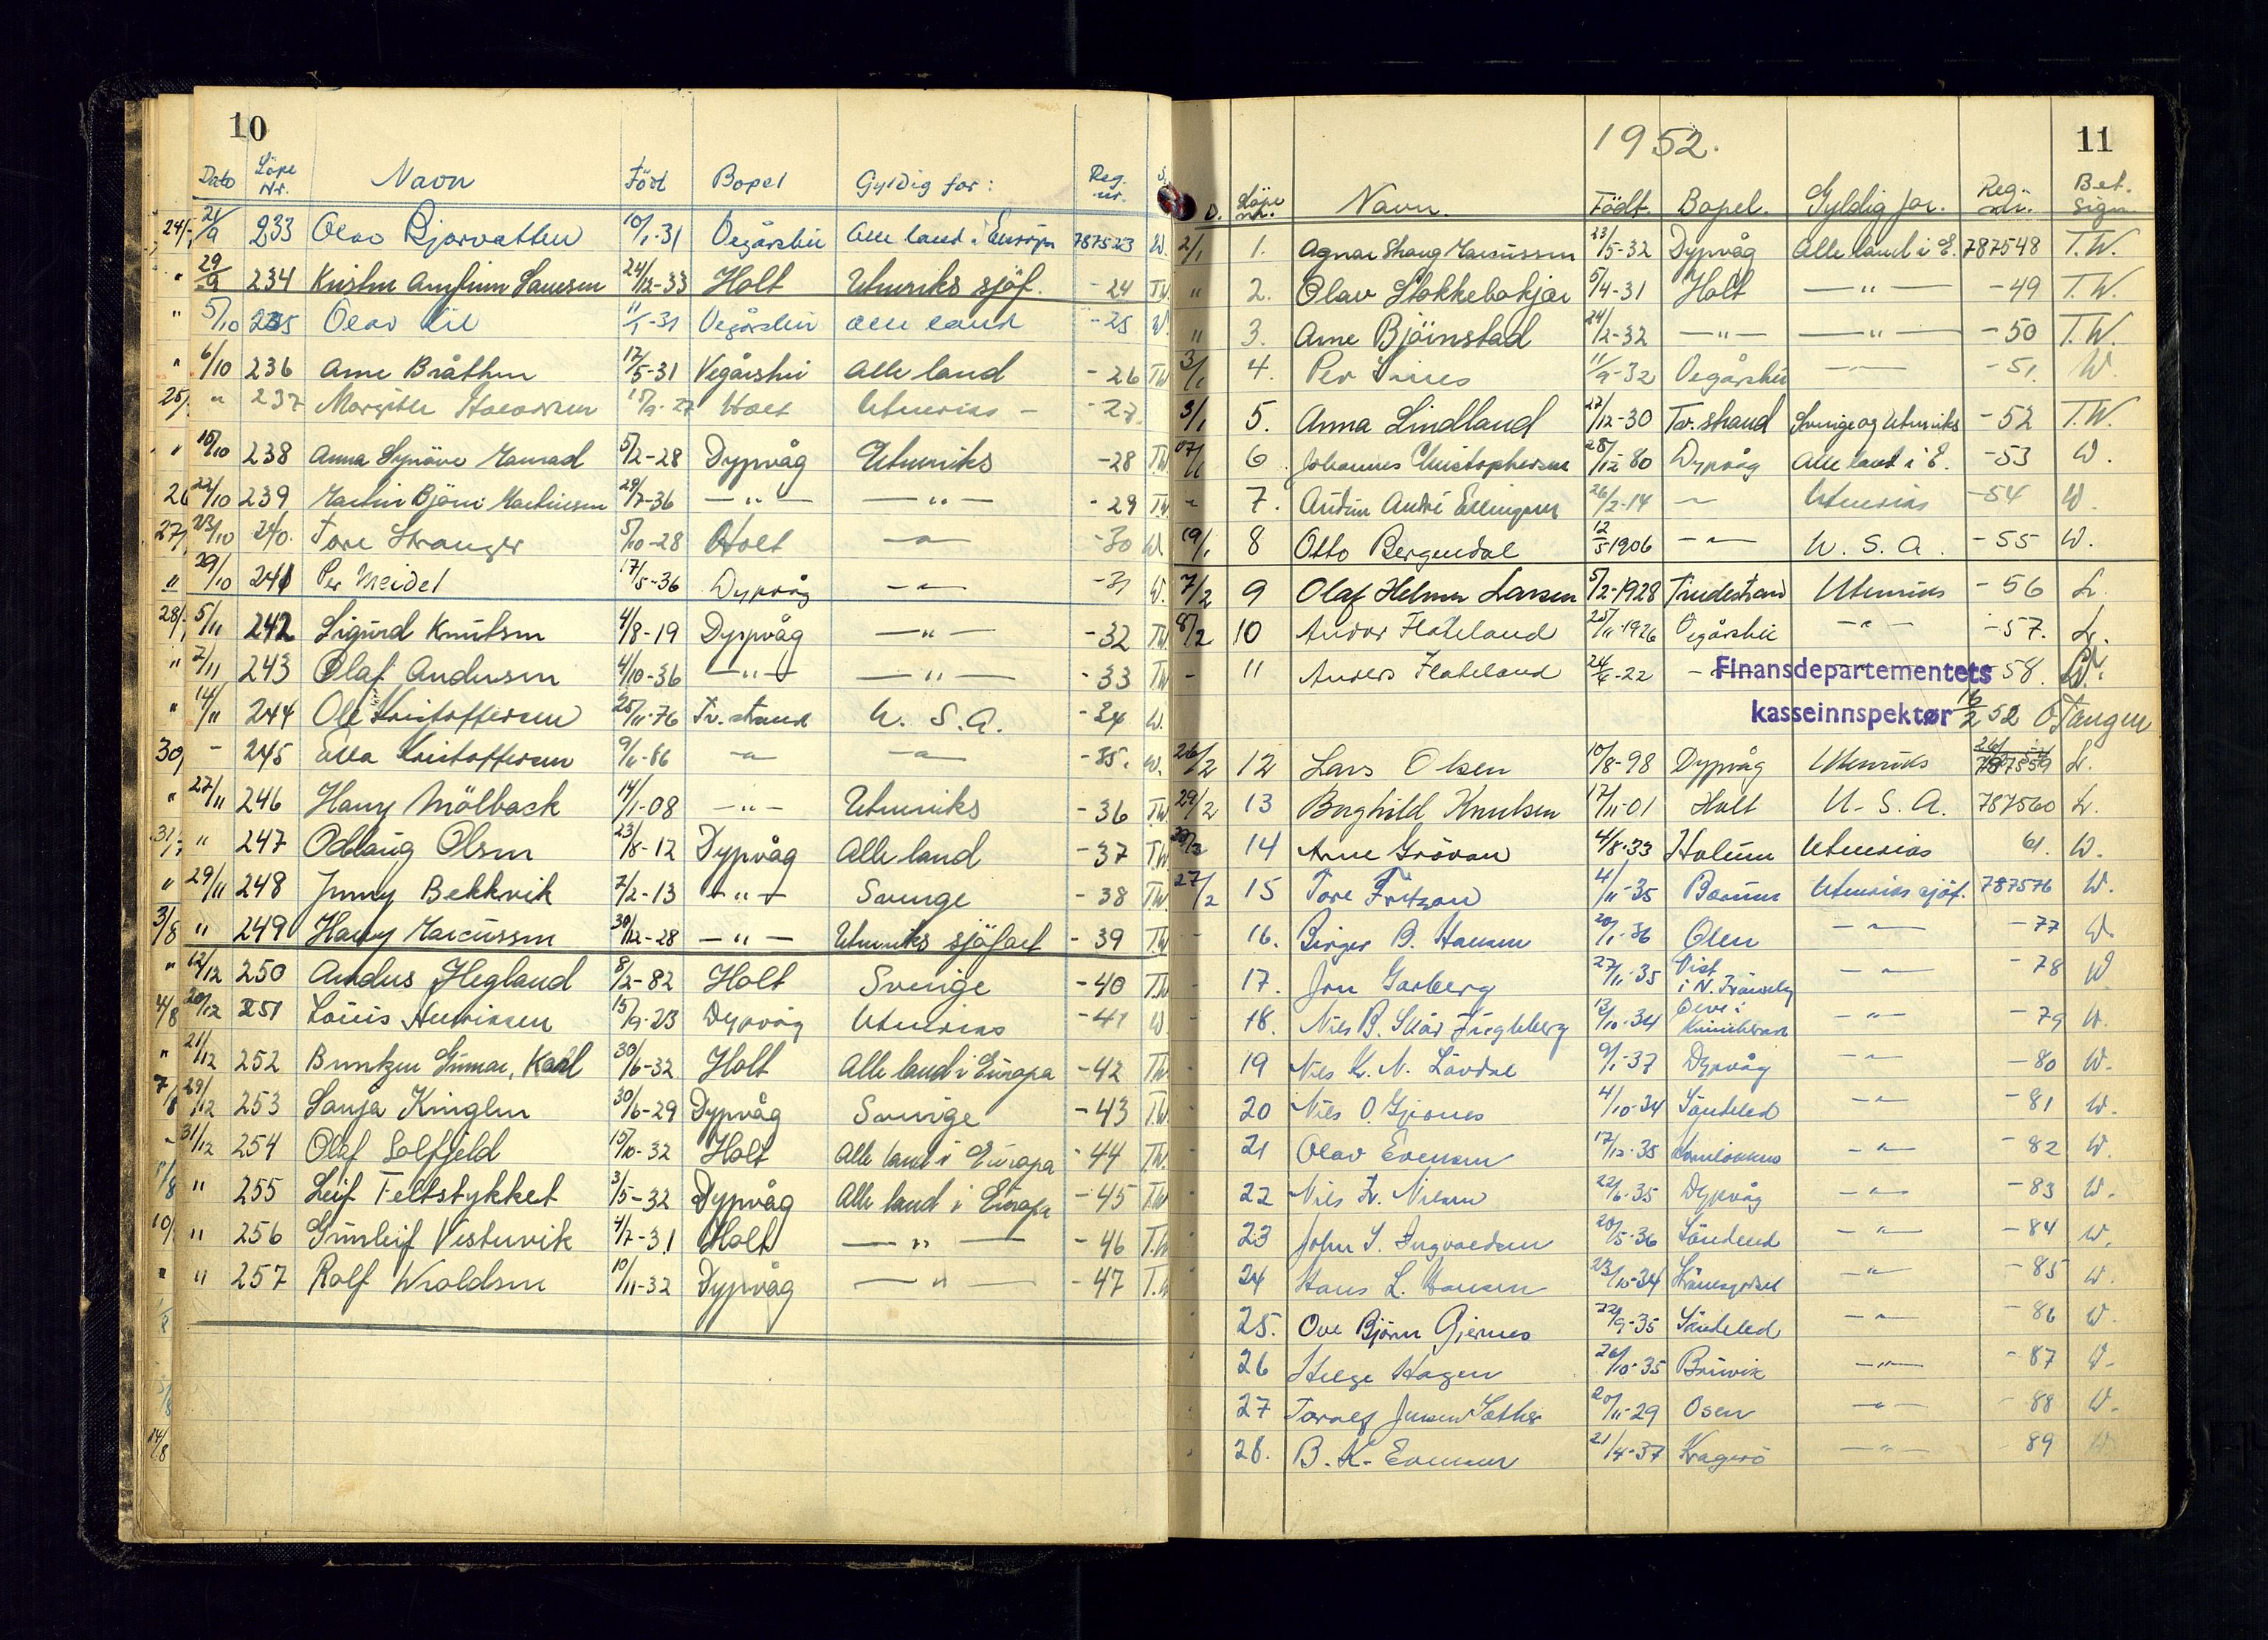 10
Dato Löpe Nr. Navn Född Bopel Gyldig for: Reg. nr.
21/9 233 Olav Bjorvatten 10/1-31 Vegårshei Alle land i Europa 787523 W.
29/9 234 24/12-33 Holt Utenriks sjöf. -24 TW
5/10 235 Olav Lil 11/1-31 Vegårshei alle land -25 W.
6/10 236 Arne Bråthen 17/5-31 Vegårshei Alle land -26 TW
" 237 Margithe Halvorsen 15/9-27 Holt Utenriks - -27
15/10 238 Anna Synöve 5/2-28 Dypvåg Utenriks -28 TW
22/10 239 Martin Björn Martinsen 29/7-36 -"- -"- -29 TW
23/10 240. Tore Stranger 5/10-28 Holt -"- -30 W
29/10 241 Per Meidel 17/5-36 Dypvåg -"- -31 W.
5/11 242 Sigurd Knutsen 4/8-19 Dypvåg -"- -32 TW
7/11 243 Olaf Andersen 4/10-36 -"- -"- -33 TW
14/11 244 Ole Kristoffersen 25/11-76 Tv.strand U. S. A. -34 W.
- 245 Ella Kristoffersen 9/11-86 -"- -"- -35. W.
27/11 246 Harry Mölback 14/1-08 -"- Utenriks -36 T.W.
" 247 Odlaug Olsen 23/8-12 Dypvåg Alle land -37 T.W
29/11 248 Jenny Bekkvik 7/2-13 -"- Sverige -38 T.W.
" 249 Harry Marcussen 30/12-28 -"- Utenriks sjöfart -39 TW
12/12 250 Andres Hegland 8/2-82 Holt Sverige -40 T.W
20/12 251 Louis Henriksen 15/9-23 Dypvåg Utenriks -41 W
21/12 252 Berntzen Gunnar, Karl 30/6-32 Holt Alle land i Europa -42 T.W.
29/12 253 Sonja Kinglen 30/6-29 Dypvåg Sverige -43 T.W.
31/12 254 Olaf Solfjeld 15/10-32 Holt Alle land i Europa -44 T.W.
" 255 Leif Feltstykket 3/5-32 Dypvåg Alle land i Europa -45 T.W
" 256 Gunleif Vestervik 4/7-31 Holt -"- -46 T.W
" 257 Rolf Wroldsen 10/11-32 Dypvåg -"- -47 T.W
1952.
11
D. Löpe nr. Navn. Födt. Bopel. Gyldig for. Reg. nr. Bet. Sign.
2/1 1. Agnar Strang Marcussen 23/5-32 Dypvåg Alle land i E. 787548 T.W.
" 2. Olav Stokkebokjær 5/4-31 Holt -"- -49 T.W.
" 3. Arne Björnstad 24/2-32 -"- -"- -50 T.W.
3/1 4. Per 11/9-32 Vegårshei -"- -51. W.
3/1 5. Anna Lindland 27/12-30 Tv.strand Sverige og Utenriks -52 T.W.
6 Johannes Christophersen 28/12-80 Dypvåg Alle land i E. -53 W.
" 7. Andre Ellingsen 26/2-14 -"- Utenriks -54 W.
19/1 8 Otto Bergendal 12/5 1906 -"- U. S. A. -55 W.
7/2 9 Olaf Helmer Larsen 5/2-1928 Tvedestrand Utenriks -56 L.
8/2 10 Andor Flateland 25/11-1926 Vegårshei -"- -57. L.
- 11 Anders Flateland 24/6-22 - -58.
Finansdepartementets
kasseinnspektør 16/2 52 O Tangen
26/2 12 Lars Olsen 10/8-98 Dypvåg Utenriks 787559 L.
29/2 13 Borghild Knutsen 17/11-01 Holt U. S. A. 787560 L.
14 Arne Grövan 4/8-33 Holum Utenriks 61. W.
27/2 15 Tore Fritzon 4/11-35 Bærum Utenriks sjöf. 787576 W.
- 16. Birger B. Hansen 20/1-36 Ölen -"- -77 W.
- 17. Jon Garberg 27/11-35 -"- -78 W
- 18. 13/10-34 -"- -79 W.
- 19 Nils K. N. Lövdal 9/1-37 Dypvåg -"- -80 W.
- 20 Nils O. Gjernes 4/10-34 Söndeled -"- -81 W.
- 21 Olav Evensen 17/12-35 -"- -82 W.
- 22 Nils Kr. Nilsen 22/6-35 Dypvåg -"- -83 W.
- 23 John S. Ingvaldsen 20/5-36 Söndeled -"- -84 W.
- 24 Hans L. Hansen 23/10-34 -"- -85 W.
- 25. Ove Björn Gjernes 22/9-35 Söndeled -"- -86 W.
- 26 Helge Hagen 26/10-35 Bruvik -"- -87 W.
- 27 Toralf Jensen Sæther 20/11-29 Osen -"- -88 W.
- 28. B. K. Evensen 21/4-37 Kragerö -"- 89 W